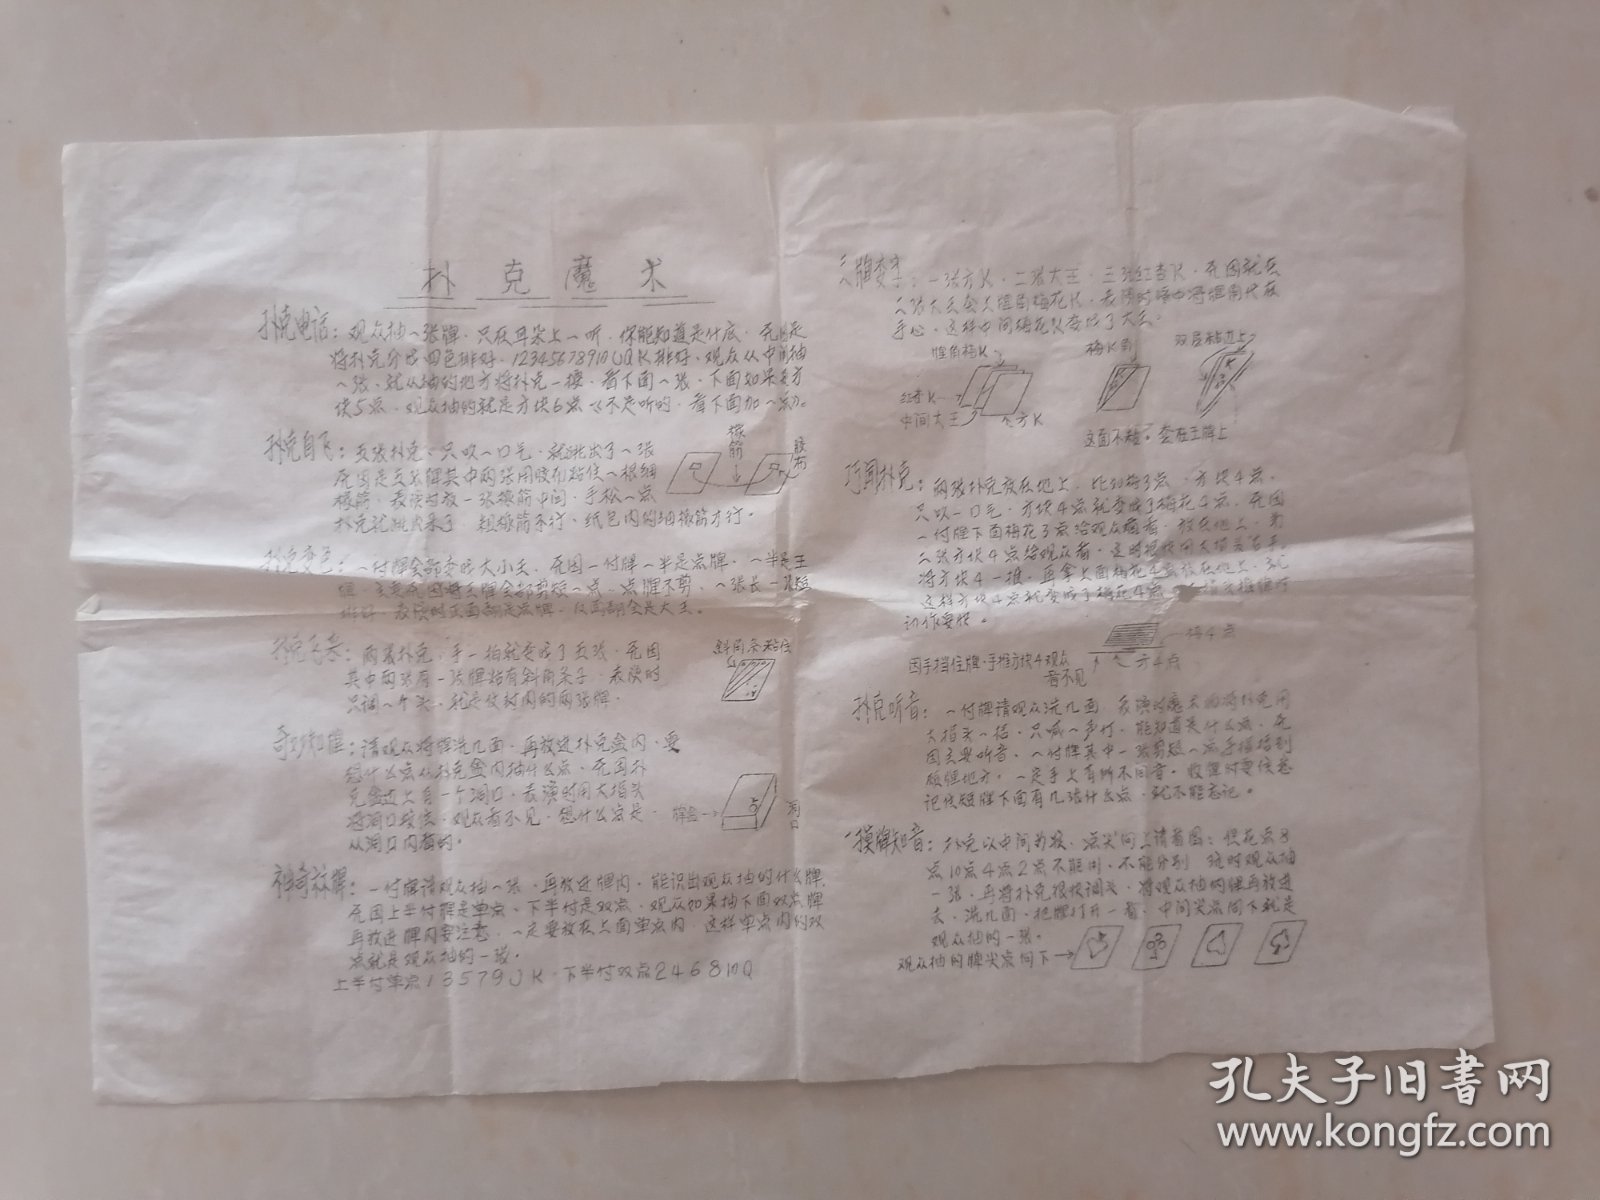 扑克魔术
扑克电话：观众抽一张牌，只在耳朵上一听，你能知道是什庅，死因是
将扑克分成四色排好，12345678910JQK排好，观众从中间抽
一张，就从抽的地方将扑克一搂，看下面一张，下面如果是方
块5点，观众抽的就是方块6点《不是听的，看下面加一点》。
扑克自飞：五张扑克，只吹一口气，就跳出了一张
死因是五张牌其中两张用胶布粘住一根细
橡筋，表演时放一张橡筋中间，手松一点
扑克就跳出来了，粗橡筋不行，纸包内的细橡筋才行。
橡筋
胶布
扑克变色：一付牌全部变成大小王，死因一付牌一半是点牌，一半是王
牌，主要死因将王牌全部剪短一点，点牌不剪，一张长一张短
排好，表演时正面都是点牌，反面都全是大王。
扑克：两张扑克，手一拍就变成了五张，死因
其中两张有一张牌粘有斜角条子，表演时
只调一个头，就是仅封内的两张牌。
斜角条粘住
奇妙知牌：请观众将牌洗几面，再放进扑克盒内，要
想什么点从扑克盒内抽什么点，死因扑
克盒边上有一个洞口，表演时用大指头
将洞口按住，观众看不见，想什么点是
从洞口内看的。
牌盒→
洞口
神奇牌：一付牌请观众抽一张，再放进牌内，能识出观众抽的什么牌，
死因上半付牌是单点，下半付是双点，观众如果抽下面双点牌
再放进牌内要注意，一定要放在上面单点内，这样单点内的双
点就是观众抽的一张。
上半付单点13579JK，下半付双点246810Q
三牌变字：一张方K，二张大王，三张红杏K，死因就在
二张大王套又粘角梅花K，表演时暗中将牌角代在
手心，这样中间梅花K变成了大王。
牌角梅K
梅K角
双层粘边上
红杏K
中间大王
方K
这面不粘。套在王牌上
巧闻扑克：两张扑克放在地上，比如梅3点，方块4点，
只吹一口气，方块4点就变成了梅花4点，死因
一付牌下面梅花3点给观众看，放在地上，第
二张方块4点给观众看，这时很快用大指头
将方块4一推，再拿上面梅花4点放在地上，
这样方块4点就变成了梅花4点
动作要快。
梅4点
方4点
因手挡住牌，手推方块4观众
看不见
扑克听音：一付牌请观众洗几面，表演时魔术师将扑克用
大指头一括，只喊一声灯，能知道是什么点，死
因主要听音，一付牌其中一张剪短一点手指括到
短牌地方，一定手上有所不同音，收牌时要注意
记住短牌下面有几张什么点，就不能忘记。
摸牌知音：扑克以中间为数，点尖向上请看图：但花点8
点10点4点2点不能用，不能分别，玩时观众抽
一张，再将扑克很快调头，将观众抽的牌再放进
去，洗几面，把牌打开一看，中间尖点向下就是
观众抽的一张。
观众抽的牌尖点向下→
孔夫子旧书网
www.kongfz.com